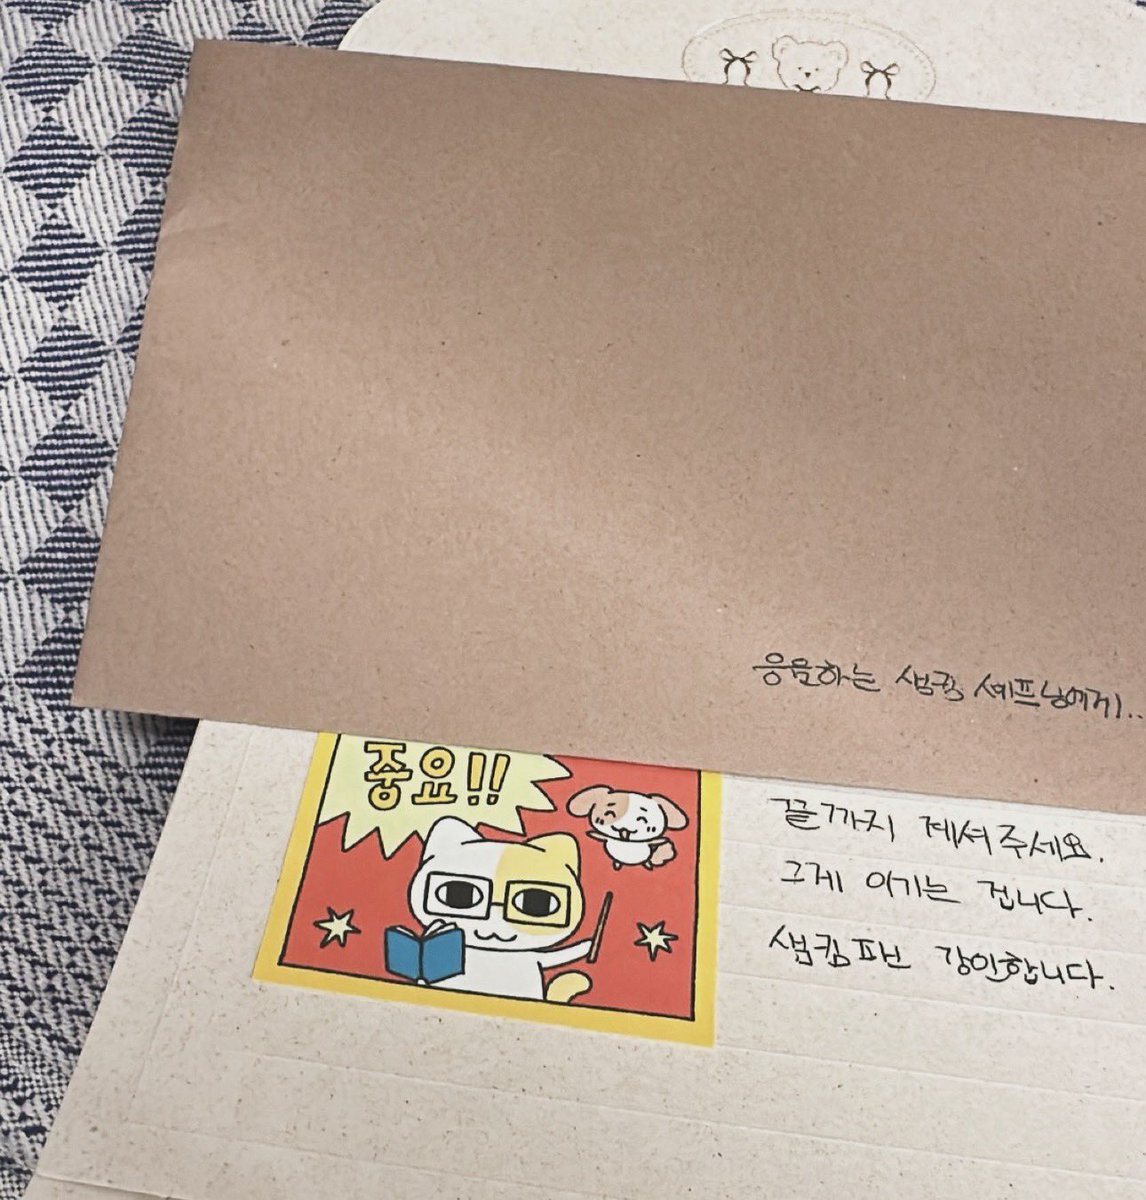 응원하는 샘킴 셰프님에게..
중요!!
끝까지 계셔주세요.
그게 이기는 겁니다.
샘킴파는 강인합니다.